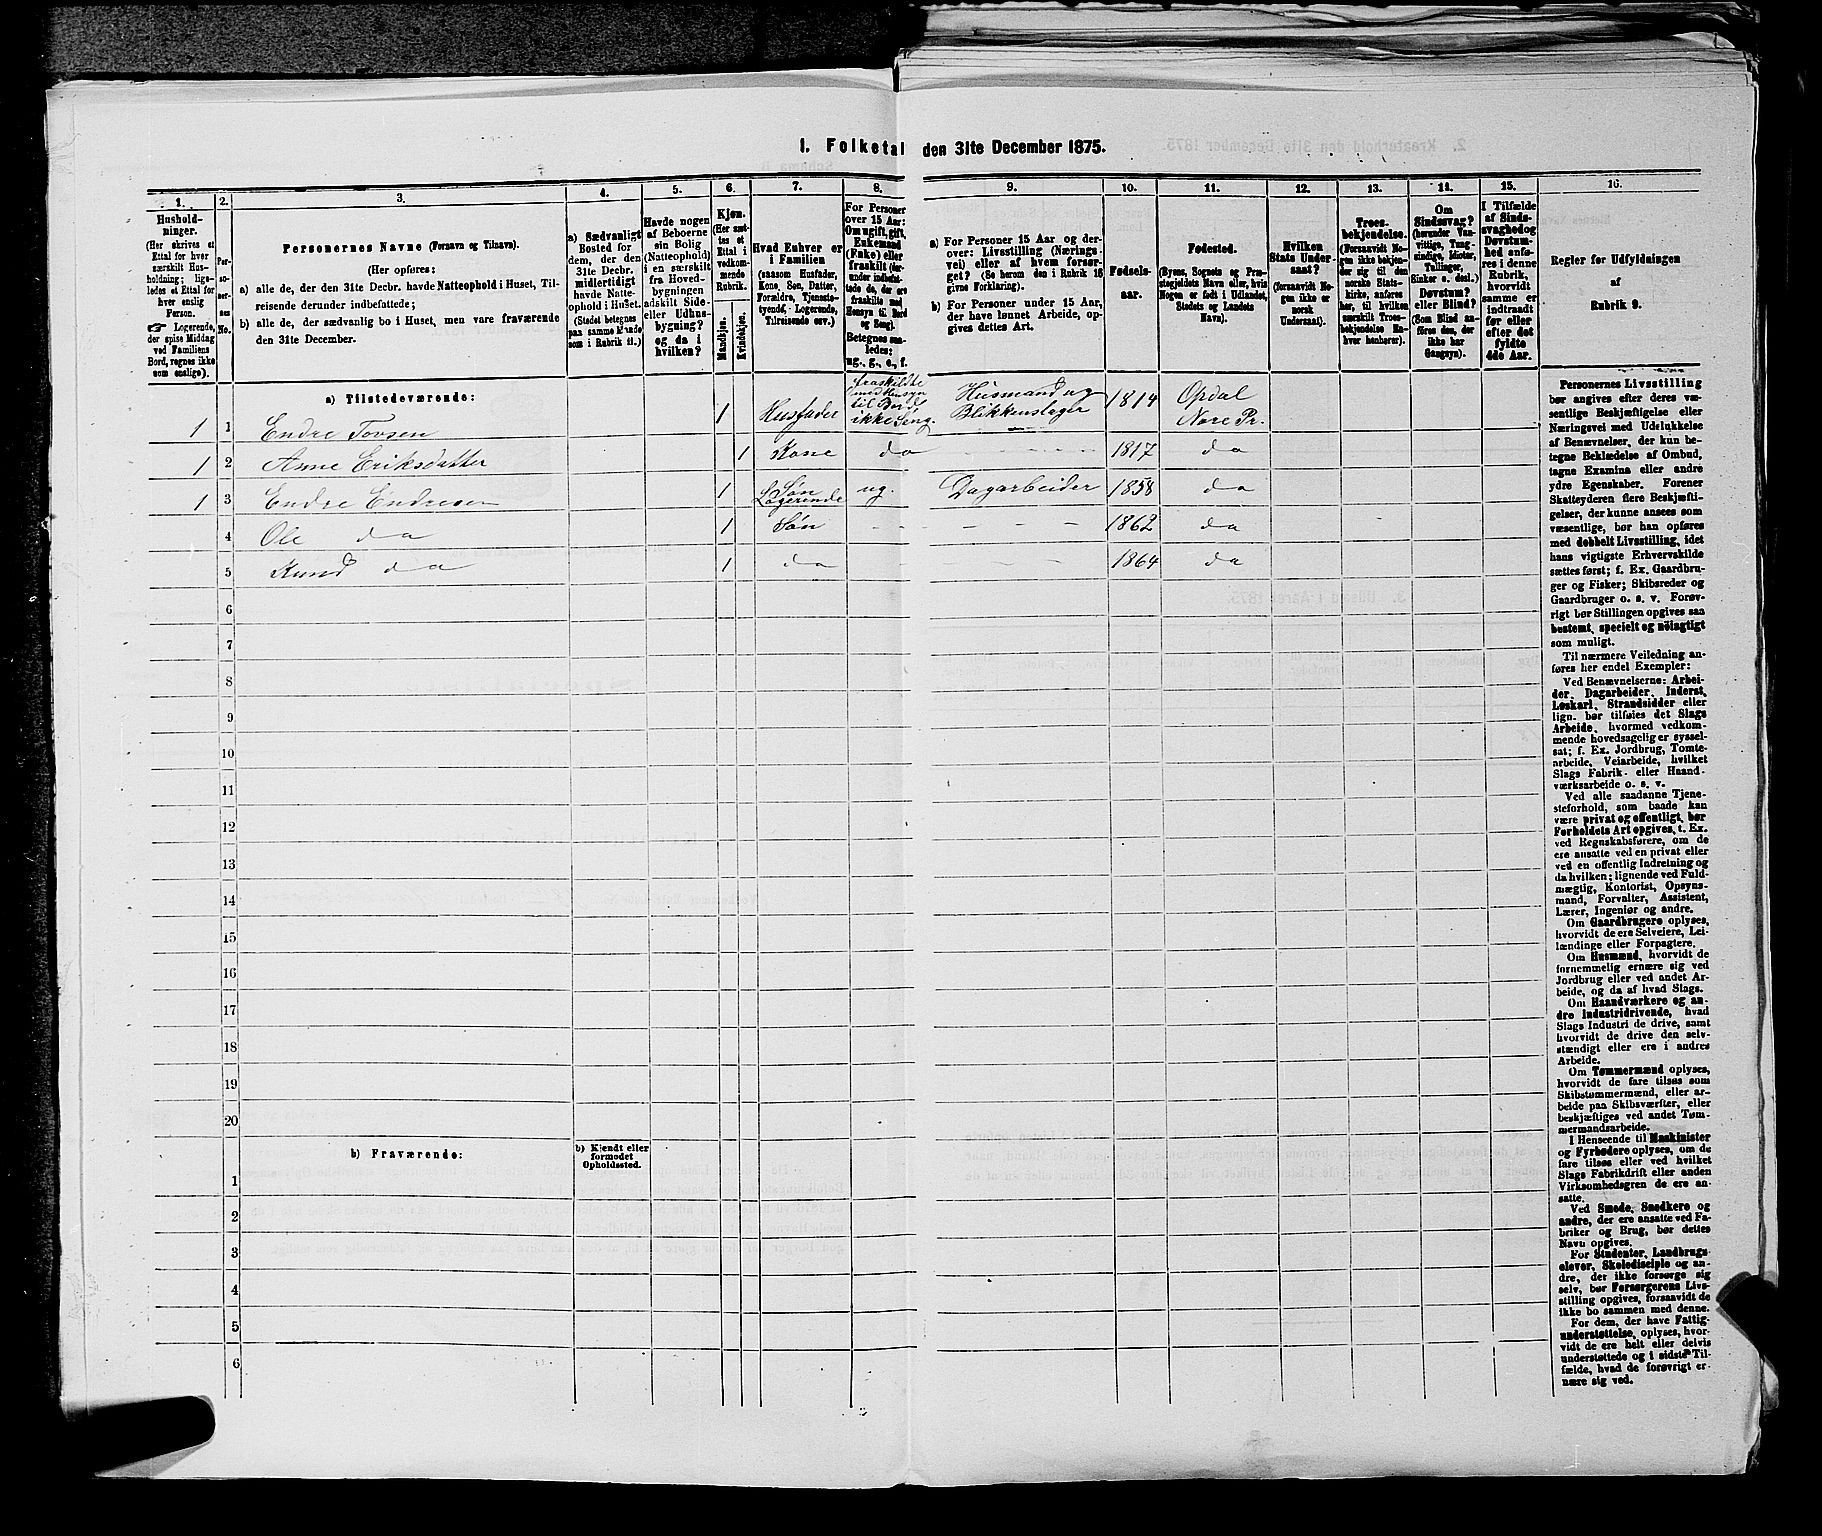 1. Folketal den 31te December 1875.
1. 2. 3. 4. 5. 6. 7. 8. 9. 10. 11. 12. 13. 14. 15. 16.
Hushold-
ninger.
(Her skrives et
Ettal for hver
særskilt Hus-
holdning; lige-
ledes et Ettal for
hver enslig
Person.
☞ Logerende,
der spise Middag
ved Familiens
Bord, regnes ikke
som enslige).
Per-
so-
ner-
nes
No.
Personernes Navne (Fornavn og Tilnavn).
(Her opføres:
a) alle de, der den 31te Decbr. havde Natteophold i Huset, Til-
reisende derunder indbefattede;
b) alle de, der sædvanlig bo i Huset, men vare fraværende
den 31te December.
a) Sædvanligt
Bosted for
dem, der den
31te Decbr.
midlertidigt
havde Natte-
ophold i Huset.
(Stedet betegnes
paa samme Maade
som i Rubrik 11.)
Havde nogen
af Beboerne
sin Bolig
(Natteophold)
i en særskilt
fra Hoved-
bygningen
adskilt Side-
eller Udhus-
bygning?
og da i
hvilken?
Kjøn.
(Her sæt-
tes et
Ettal i
vedkom-
mende
Rubrik.
Mandkjøn.
Kvindekjøn.
Hvad Enhver er
i Familien
(saasom Husfader,
Kone, Søn, Datter,
Forældre, Tjeneste-
tyende, Logerende,
Tilreisende osv.)
For Personer
over 15 Aar:
Om ugift, gift,
Enkemand
(Enke) eller
fraskilt (der-
under indbefat-
tede de, der ere
fraskilte med
Hensyn til Bord
og Seng).
Betegnes saa-
ledes:
ug., g., e., f.
a) For Personer 15 Aar og der-
over: Livsstilling (Nærings-
vei) eller af hvem forsør-
get? (Se herom den i Rubrik 16
givne Forklaring).
b) For Personer under 15 Aar,
der have lønnet Arbeide, op-
gives dettes Art.
Fødsels-
aar.
Fødested.
(Byens, Sognets og Præ-
stegjeldets Navn eller, hvis
Nogen er født i Udlandet,
Stedets og Landets
Navn).
Hvilken
Stats Under-
saat?
(forsaavidt No-
gen ikke er
norsk
Undersaat).
Troes-
bekjendelse.
(Forsaavidt No-
gen ikke bekjen-
der sig til den
norske Stats-
kirke, anføres
her, til hvilken
særskilt Troes-
bekjendelse En-
hver henhører).
Om
Sindssvag?
(herunder Van-
vittige, Tung-
sindige, Idioter,
Tullinger,
Sinker o. desl.)
Døvstum?
eller Blind?
(Som Blind an-
føres den, der
ikke har
Gangsyn).
I Tilfælde
af Sinds-
svaghed og
Døvstum-
hed anfø-
res i denne
Rubrik,
hvorvidt
samme er
indtraadt
før eller
efter det
fyldte
4de Aar.
Regler for Udfyldningen
af
Rubrik 9.
a) Tilstedeværende:
1 1 Endre Tovsen 1 Husfader fraskildte med Hensyn til Bord ikke Seng. Husmand og Blikkenslager 1814 Opdal Nore Pr.
1 2 Anne Eriksdatter 1 Kone do - - - - 1817 do
1 3 Endre Endresen 1 Søn Logerende ug. Dagarbeider 1858 do
4 Ole do 1 Søn - - - - - 1862 do
5 Knud do 1 do - - - 1864 do
6
7
8
9
10
11
12
13
14
15
16
17
18
19
20
b) Fraværende:
b) Kjendt eller
formodet
Opholdssted.
1
2
3
4
5
6
Personernes Livsstilling
bør angives efter deres væ-
sentlige Beskjæftigelse eller
Næringsvei med Udelukkelse
af Benævnelser, der kun be-
tegne Beklædelse af Ombud,
tagne Examina eller andre
ydre Egenskaber. Forener
Skatteyderen flere Beskjæfti-
gelser, der kunne ansees som
væsentlige, bør han opføres
med dobbelt Livsstilling, idet
hans vigtigste Erhvervskilde
sættes først; f. Ex. Gaardbru-
ger og Fisker; Skibsreder og
Gaardbruger o. s. v. Forøv-
rigt bør Stillingen opgives saa
bestemt, specielt og nøiagtigt
som muligt.
Til nærmere Veiledning an-
føres her endel Exempler:
Ved Benævnelserne: Arbei-
der, Dagarbeider, Inderst,
Løskarl, Strandsidder eller
lign. bør tilføies det Slags
Arbeide, hvormed vedkom-
mende hovedsagelig er syssel-
sat; f. Ex. Jordbrug, Tomte-
arbeide, Veiarbeide, hvilket
Slags Fabrik- eller Haand-
værksarbeide o. s. v.
Ved alle saadanne Tjene-
steforhold, som baade kan
være privat og offentligt, bør
Forholdets Art opgives, t. Ex.
ved Regnskabsførere, om de
ere ansatte ved en privat eller
ved en offentlig Indretning og
da hvilken; lignende ved Fuld-
mægtig, Kontorist, Opsyns-
mand, Forvalter, Assistent,
Lærer, Ingeniør og andre.
Om Gaardbrugere oplyses,
hvorvidt de ere Selveiere, Lei-
lændinge eller Forpagtere.
Om Husmænd, hvorvidt de
fornemmelig ernære sig ved
Jordbrug eller ved andet Ar-
beide, og da af hvad Slags.
Om Haandværkere og an-
dre Industridrivende, hvad
Slags Industri de drive, samt
hvorvidt de drive den selv-
stændigt eller ere i andres
Arbeide.
Om Tømmermænd oplyses,
hvorvidt de fare tilsøs som
Skibstømmermænd, eller ar-
beide paa Skibsværfter, eller
beskjæftiges ved andet Tøm-
mermandsarbeide.
I Henseende til Maskinister
og Fyrbødere oplyses, om de
fare tilsøs eller ved hvilket
Slags Fabrikdrift eller anden
Virksomhedsgren de ere an-
satte.
Ved Smede, Snedkere og
andre, der ere ansatte ved Fa-
briker og Brug, bør dettes
Navn opgives.
For Studenter, Landbrugs-
elever, Skoledisciple og an-
dre, der ikke forsørge sig
selv, bør Forsørgerens Livs-
stilling opgives, forsaavidt de
ikke bo sammen med denne.
For dem, der have Fattig-
understøttelse, oplyses, hvor-
vidt de ere helt eller delvis
understøttede og i sidste Til-
fælde, hvad de forøvrigt er-
nære sig ved.